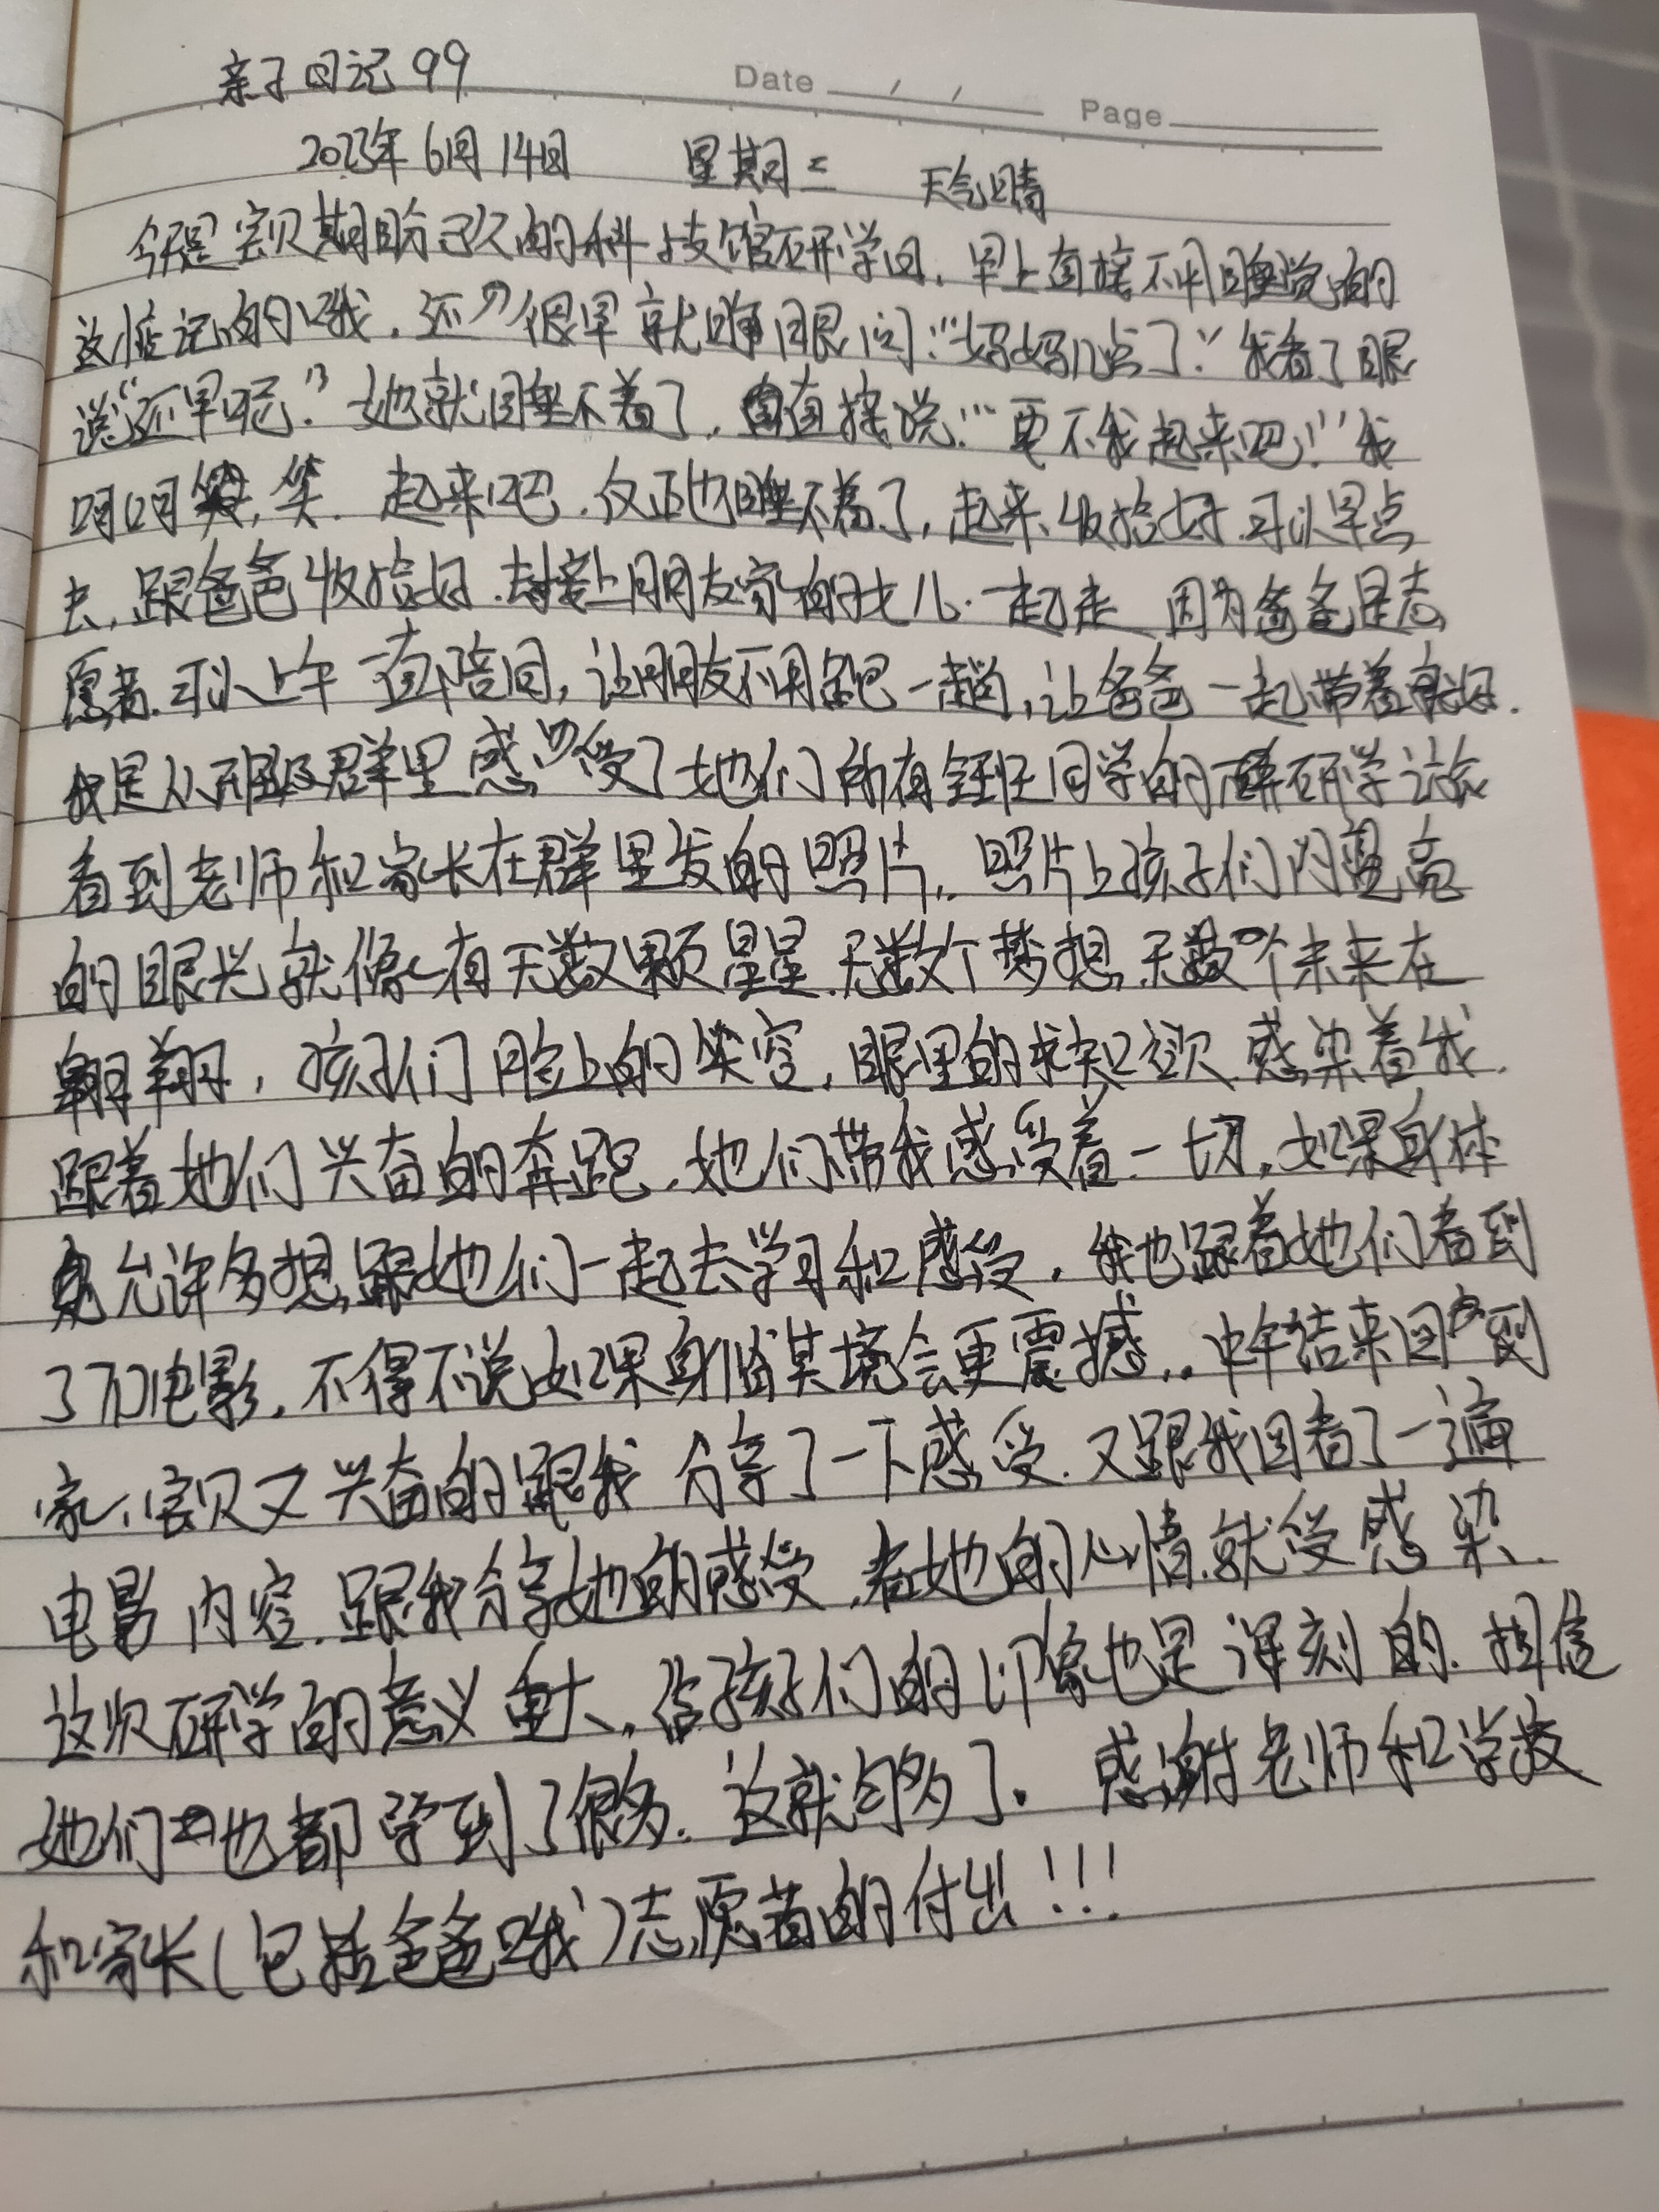 亲子日记 99
Date / / Page
2023年6月14日 星期三 天气晴
今天是宝贝期盼已久的科技馆研学日，早上直接不用睡觉的
这惦记的哦，还很早就睁眼问："妈妈几点了？"我看了眼
说"还早呢。"她就睡不着了，直接说："要不我起来吧！"我
呵呵笑，笑.起来吧.反正也睡不着了，起来收拾好.可以早点
去，跟爸爸收拾好.去接上朋友家的女儿.一起走 因为爸爸是志
愿者.可以上午一直陪同，让朋友不用跑一趟，让爸爸一起带着就好.
我是从班级群里感受了她们所有全班同学的研学之旅
看到老师和家长在群里发的照片.照片上孩子们闪亮亮
的眼光就像有无数颗星星.无数个梦想,无数个未来在
翱翔，孩子们脸上的笑容，眼里的求知欲.感染着我.
跟着她们兴奋的奔跑.她们带我感受着一切，如果身体
允许多想跟她们一起去学习和感受，我也跟着她们看到
了7D电影，不得不说如果身临其境会更震撼..中午结束回到
家，宝贝又兴奋的跟我 分享了一下感受.又跟我回看了一遍
电影内容.跟我分享她的感受,看她的心情就受感染.
这次研学的意义重大.给孩子们的印象也是深刻的.相信
她们也都学到了很多.这就够了。感谢老师和学校
和家长(包括爸爸哦)志愿者的付出!!!